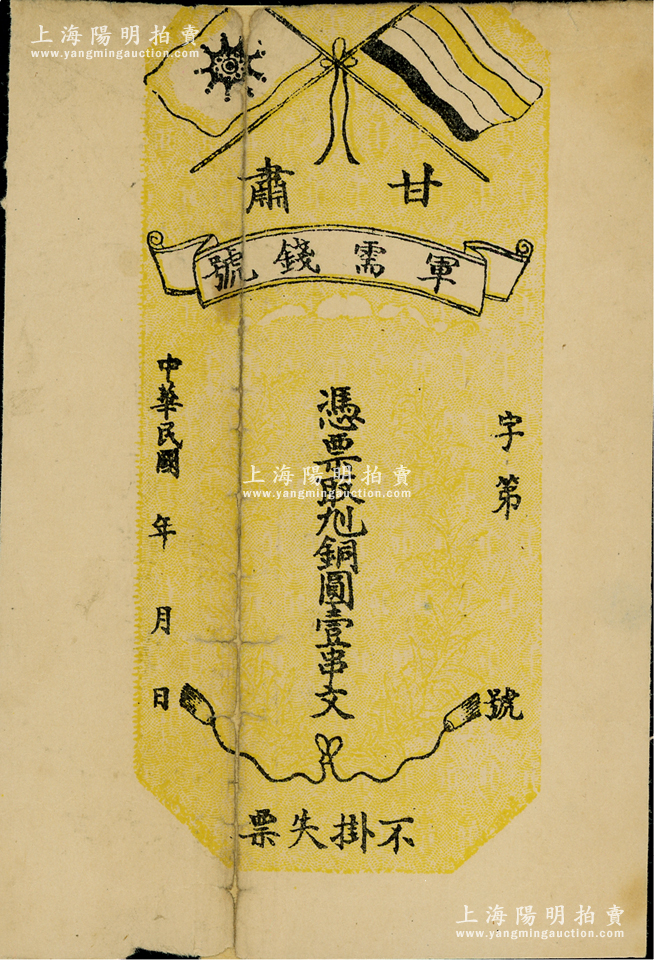 上海陽明拍賣
www.yangmingauction.com
甘肅
軍需錢號
字第
號
憑票取九銅圓壹串文
中華民國 年 月 日
不掛失票
上海陽明拍賣
www.yangmingauction.com
上海陽明拍賣
www.yangmingauction.com